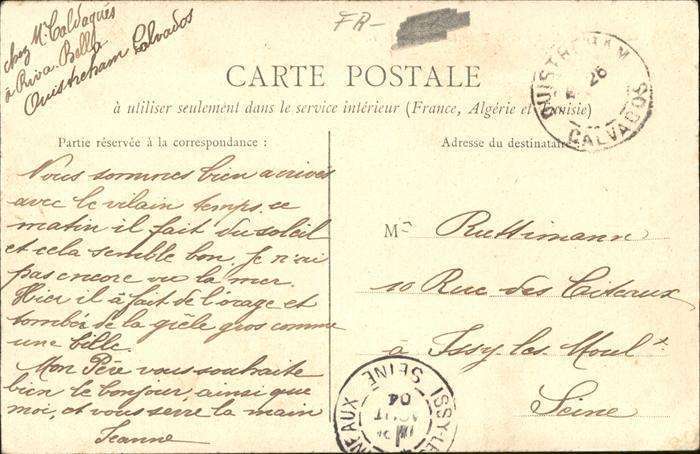 chez Mr Caldaguès
à Riva-Bella
Ouistreham Calvados
FR-
CARTE POSTALE
à utiliser seulement dans le service intérieur (France, Algérie et Tunisie)
OUISTREHAM
26
CALVADOS
Partie réservée à la correspondance :
Nous sommes bien arrivés
avec le vilain temps, ce
matin il fait du soleil
et cela semble bon. Je n'ai
pas encore vu la mer.
Hier il à fait de l'orage et
tombée de la grêle gros comme
une bille.
Mon Père vous souhaite
bien le bonjour, ainsi que
moi, et vous serre la main
Jeanne
Adresse du destinataire
M Ruttimann
10 Rue des Citeaux
à Issy les Moult
Seine
ISSY-LES NEAUX
SEINE
AOUT
04